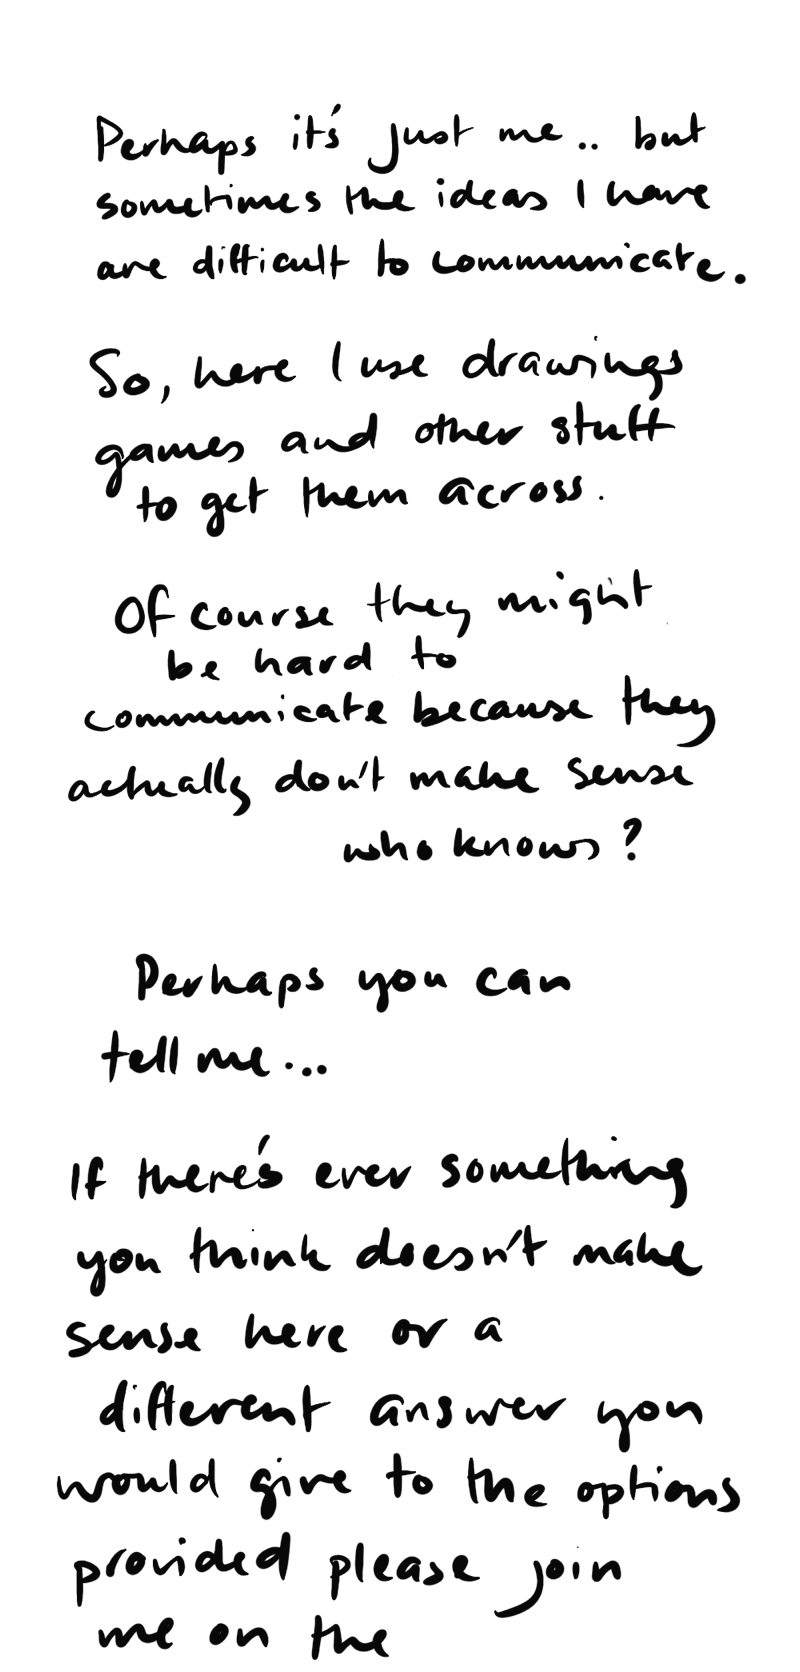 Perhaps it's just me.. but
sometimes the ideas I have
are difficult to communicate.
So, here I use drawings
games and other stuff
to get them across.
Of course they might
be hard to
communicate because they
actually don't make sense
who knows?
Perhaps you can
tell me...
If there's ever something
you think doesn't make
sense here or a
different answer you
would give to the options
provided please join
me on the